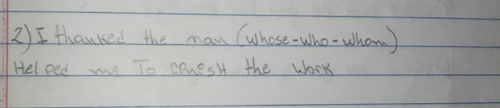 2) I thanked the man (whose-who-whom)
Helped me To the work